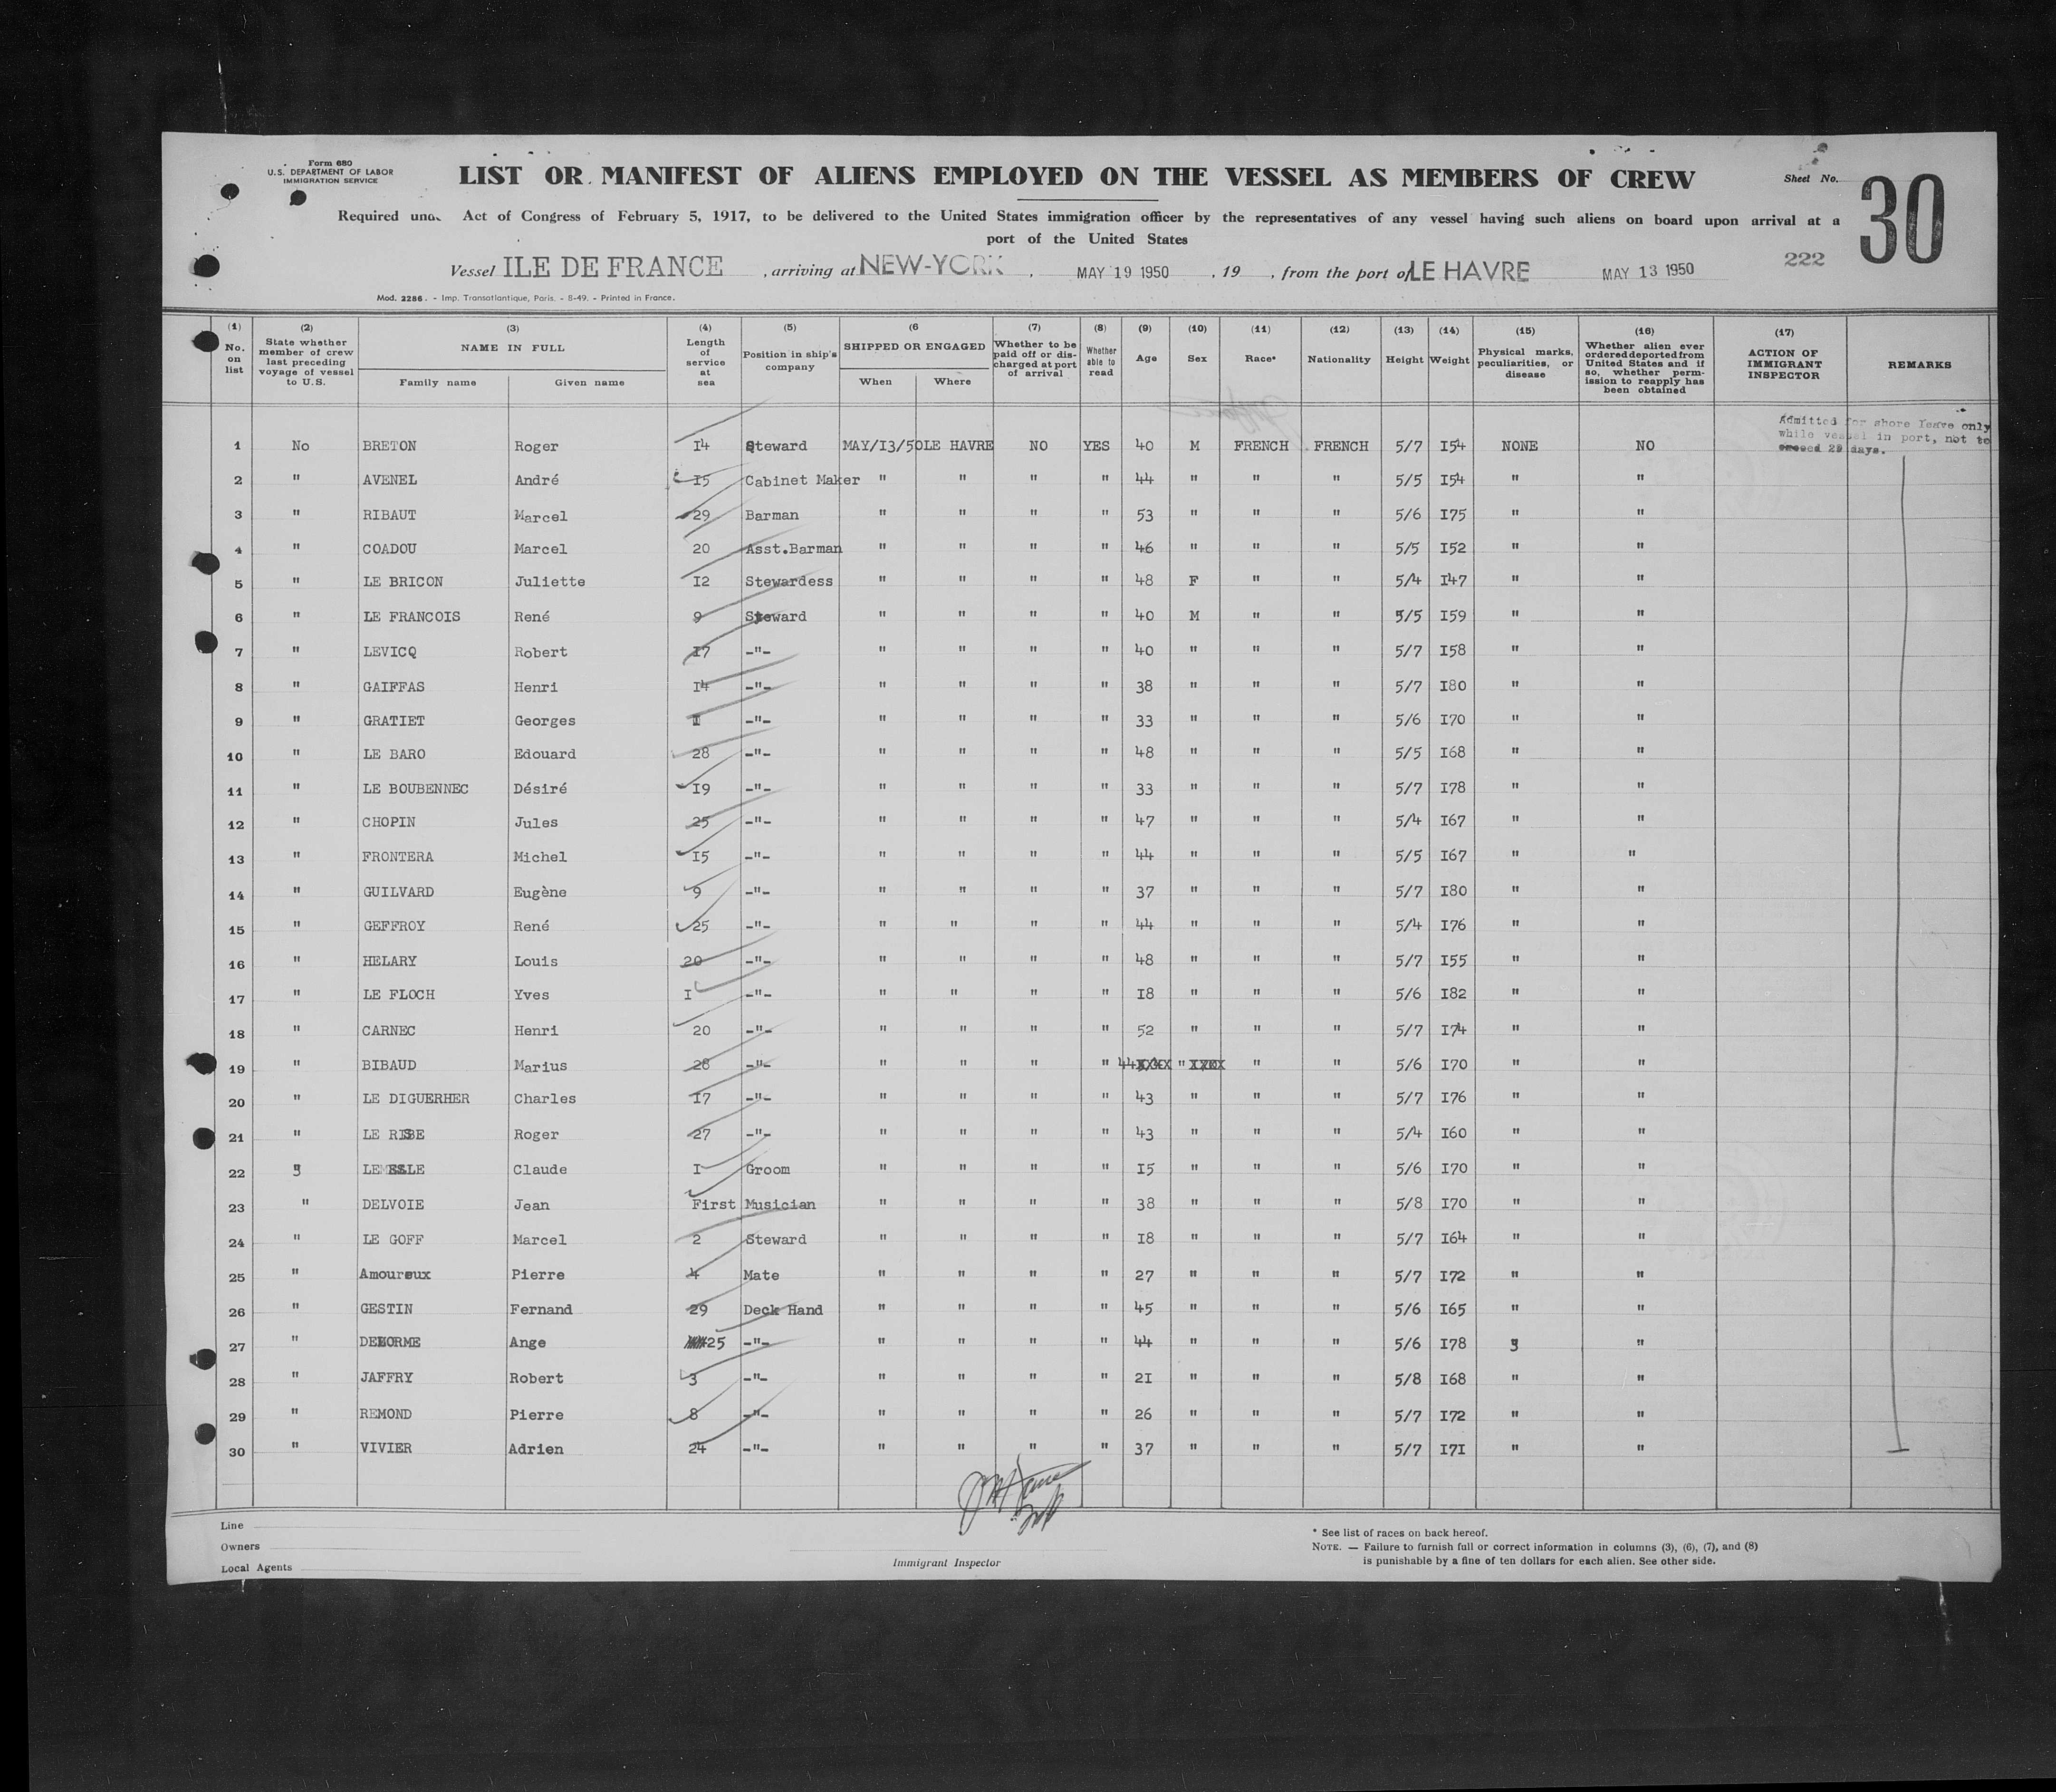 Form 680
U.S. DEPARTMENT OF LABOR
IMMIGRATION SERVICE
LIST OR MANIFEST OF ALIENS EMPLOYED ON THE VESSEL AS MEMBERS OF CREW
Sheet No. 30
Required Act of Congress of February 5, 1917, to be delivered to the United States immigration officer by the representatives of any vessel having such aliens on board upon arrival at a
port of the United States
Vessel ILE DE FRANCE , arriving at NEW-YORK , MAY 19 1950 , 19 , from the port of LE HAVRE MAY 13 1950 222
Mod. 2286. - Imp. Transatlantique, Paris. - 8-49. - Printed in France.
(1) No. on list | (2) State whether member of crew last preceding voyage of vessel to U.S. | (3) NAME IN FULL Family name Given name | (4) Length of service at sea | (5) Position in ship's company | (6 SHIPPED OR ENGAGED When Where | (7) Whether to be paid off or discharged at port of arrival | (8) Whether able to read | (9) Age | (10) Sex | (11) Race* | (12) Nationality | (13) Height | (14) Weight | (15) Physical marks, peculiarities, or disease | (16) Whether alien ever ordered deported from United States and if so, whether permission to reapply has been obtained | (17) ACTION OF IMMIGRANT INSPECTOR | REMARKS
Admitted for shore leave only
while vessel in port, not to
exceed 29 days.
1 No BRETON Roger I4 Steward MAY/I3/50 LE HAVRE NO YES 40 M FRENCH FRENCH 5/7 I54 NONE NO
2 " AVENEL André I5 Cabinet Maker " " " " 44 " " " 5/5 I54 " "
3 " RIBAUT Marcel 29 Barman " " " " 53 " " " 5/6 I75 " "
4 " COADOU Marcel 20 Asst.Barman " " " " 46 " " " 5/5 I52 " "
5 " LE BRICON Juliette I2 Stewardess " " " " 48 F " " 5/4 I47 " "
6 " LE FRANCOIS René 9 Steward " " " " 40 M " " 5/5 I59 " "
7 " LEVICQ Robert I7 -"- " " " " 40 " " " 5/7 I58 " "
8 " GAIFFAS Henri I4 -"- " " " " 38 " " " 5/7 I80 " "
9 " GRATIET Georges I -"- " " " " 33 " " " 5/6 I70 " "
10 " LE BARO Edouard 28 -"- " " " " 48 " " " 5/5 I68 " "
11 " LE BOUBENNEC Désiré I9 -"- " " " " 33 " " " 5/7 I78 " "
12 " CHOPIN Jules 25 -"- " " " " 47 " " " 5/4 I67 " "
13 " FRONTERA Michel I5 -"- " " " " 44 " " " 5/5 I67 " "
14 " GUILVARD Eugène 9 -"- " " " " 37 " " " 5/7 I80 " "
15 " GEFFROY René 25 -"- " " " " 44 " " " 5/4 I76 " "
16 " HELARY Louis 20 -"- " " " " 48 " " " 5/7 I55 " "
17 " LE FLOCH Yves I -"- " " " " I8 " " " 5/6 I82 " "
18 " CARNEC Henri 20 -"- " " " " 52 " " " 5/7 I74 " "
19 " BIBAUD Marius 28 -"- " " " " 44 " " " 5/6 I70 " "
20 " LE DIGUERHER Charles I7 -"- " " " " 43 " " " 5/7 I76 " "
21 " LE Roger 27 -"- " " " " 43 " " " 5/4 I60 " "
22 " Claude I Groom " " " " I5 " " " 5/6 I70 " "
23 " DELVOIE Jean First Musician " " " " 38 " " " 5/8 I70 " "
24 " LE GOFF Marcel 2 Steward " " " " I8 " " " 5/7 I64 " "
25 " Amoureux Pierre 4 Mate " " " " 27 " " " 5/7 I72 " "
26 " GESTIN Fernand 29 Deck Hand " " " " 45 " " " 5/6 I65 " "
27 " DELORME Ange 25 -"- " " " " 44 " " " 5/6 I78 " "
28 " JAFFRY Robert 3 -"- " " " " 2I " " " 5/8 I68 " "
29 " REMOND Pierre 8 -"- " " " " 26 " " " 5/7 I72 " "
30 " VIVIER Adrien 24 -"- " " " " 37 " " " 5/7 I7I " "
Line
Owners
Local Agents
Immigrant Inspector
* See list of races on back hereof.
NOTE. — Failure to furnish full or correct information in columns (3), (6), (7), and (8)
is punishable by a fine of ten dollars for each alien. See other side.